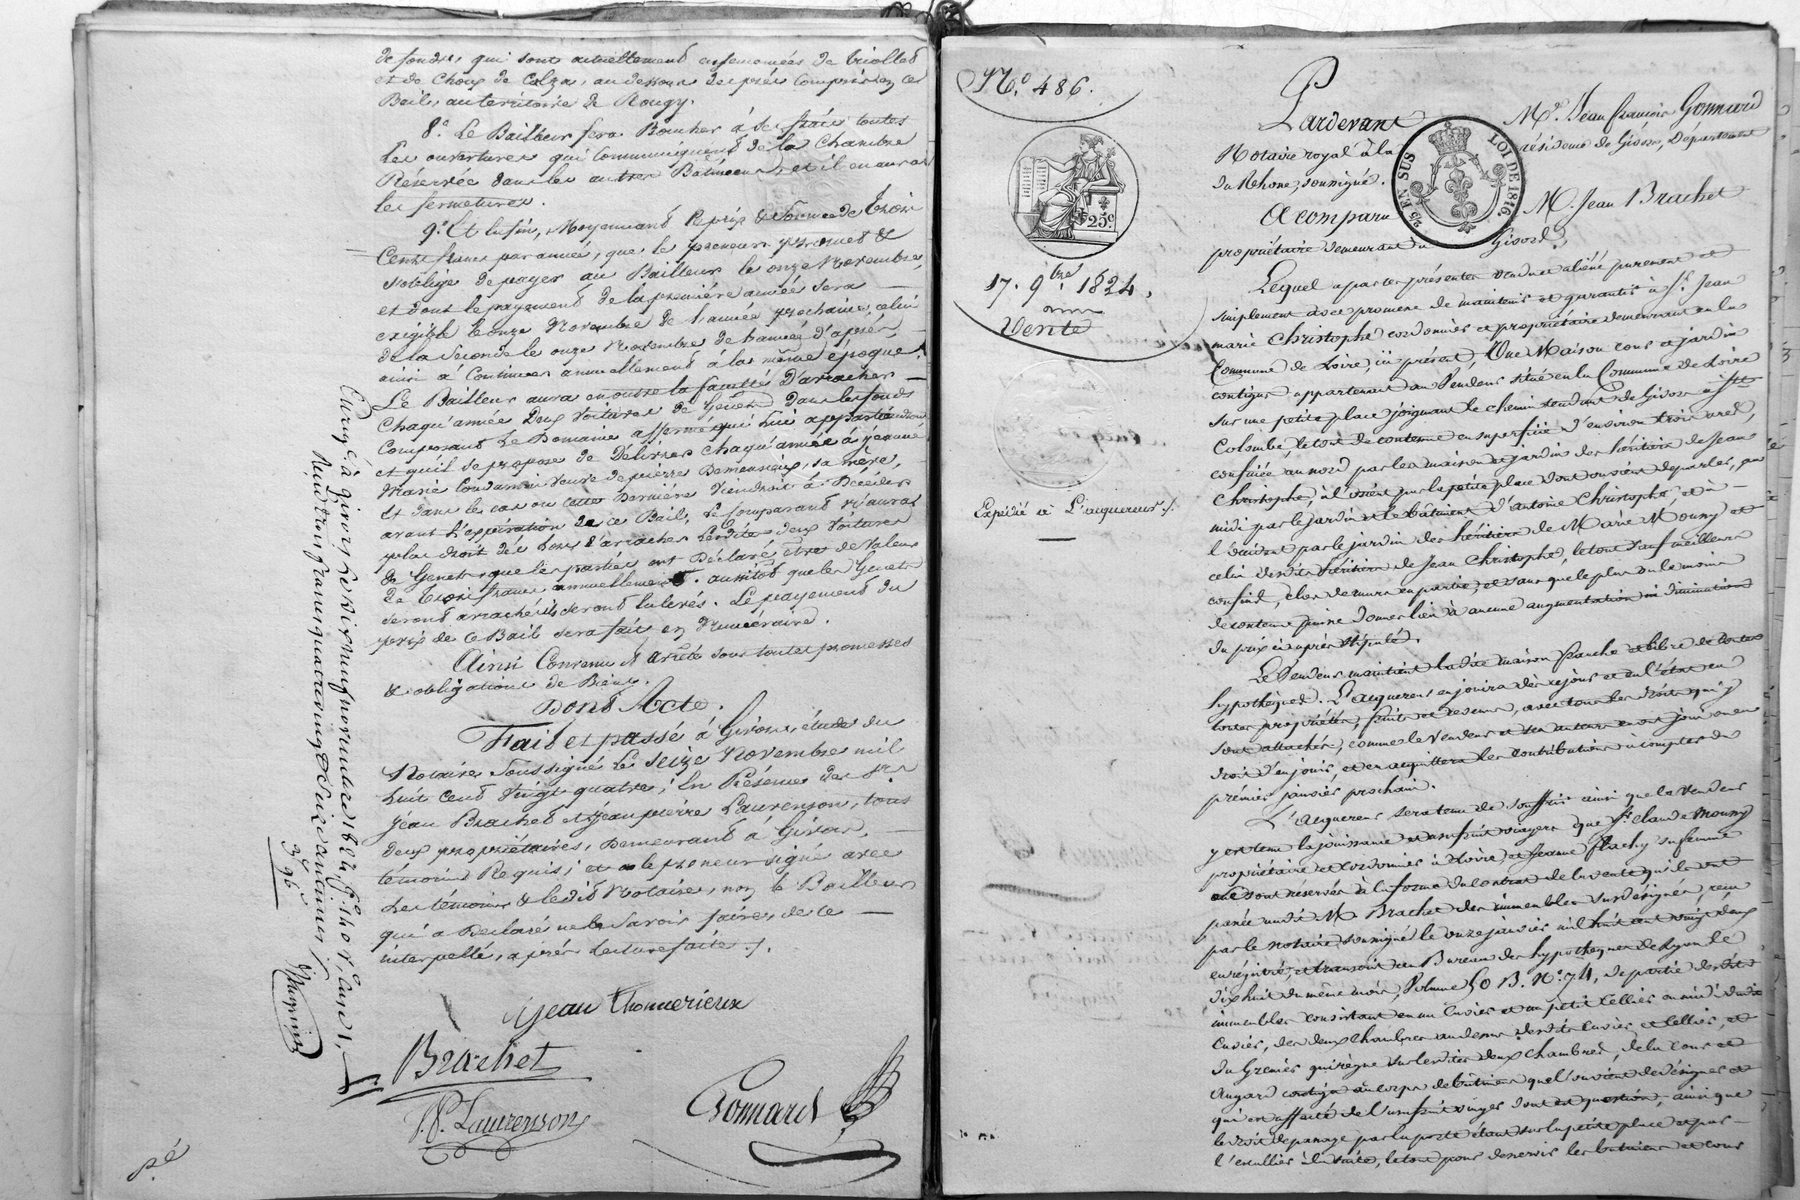 de fonds, qui sont actuellement ensemencées de triolet
et de Choux de Colza, au dessous des prés compris en ce
Bail, au territoire de Rougy.
8.° Le Bailleur fera Boucher à ses frais toutes
les ouvertures qui Communiquent de la Chambre
Réservée dans les autres Bâtiments, et il en aura
les fermetures.
9.° Et Enfin, Moyennant le prix & Somme de Trois
Cents francs par année, que le preneur promet &
s'oblige de payer au Bailleur le onze Novembre,
et dont le payement de la première année sera
exigible le onze Novembre de l'année prochaine, celui
de la Seconde le onze Novembre de l'année d'après,
ainsi à Continuer annuellement à la même époque.
Le Bailleur aura en outre la faculté D'arracher
Chaqu'année Deux Voitures de Genets Dans les fonds
Composant Le Domaine affermé qui lui appartiendront
et qu'il se propose de Délivrer chaqu'année à Jeanne
Marie veuve de pierre, sa mère,
Et dans le cas ou cette Dernière Viendroit à Décéder
avant l'expiration de ce Bail, Le Comparant n'aurait
plus droit de faire d'arracher lesdites deux Voitures
de Genets, que les parties ont Déclaré être de Valeur
de Trois francs annuellement. aussitôt que les Genets
seront arrachés ils seront enlevés. Le payement du
prix de ce Bail sera fait en Numéraire.
Ainsi Convenu & arrêté sous toutes promesses
& obligations de Biens.
Dont Acte.
Fait et passé à Givors, étude du
Notaire Soussigné Le Seize Novembre mil
huit cent Vingt quatre; En Présence de Srs
Jean Brachet et Jean pierre Laurenson, tous
deux propriétaires, Demeurant à Givors,
témoins Requis; et le preneur signé avec
les témoins & ledit Notaire, non le Bailleur
qui a Déclaré ne le Savoir faire, de ce
interpellé, après lecture faite ./.
jean thonnerieux
Brachet
J. P. Laurenson
Gonnard
Enreg.é à Givors le dix neuf novembre 1824, f.°
3f 96
p.é
N.° 486.
25c
17. 9bre 1824.
Vente
Expédié à L'acquéreur ./.
25 EN SUS
LOI DE 1816.
Pardevant M.e Jean françois Gonnard
Notaire royal à la résidence de Givors, Département
du Rhône, soussigné.
A comparu M. Jean Brachet
propriétaire demeurant à Givors.
Lequel a par ces présentes vendu et aliéné purement et
simplement avec promesse de maintenir et garantir à Sr. Jean
marie Christophe cordonnier et propriétaire demeurant en la
Commune de Loire, ici présent, Une Maison cour et jardin
contigus appartenant au Vendeur situé en la Commune de Loire
sur une petite place joignant le chemin tendant de Givors à Ste
Colombe, le tout de contenue en superficie d'environ trois ares,
confinée au nord par les maison et jardin des héritiers de Jean
Christophe, à l'orient par la petite place dont on vient de parler, au
midi par le jardin et le bâtiment d'antoine Christophe, et à
l'occident par le jardin des héritiers de Marie Mouny et
celui desdits héritiers de Jean Christophe, le tout sauf meilleurs
confins, clos de murs en partie, et sans que le plus ou le moins
de contenue puisse donner lieu à aucune augmentation ni diminution
du prix ci après stipulé.
Le Vendeur maintient ladite maison franche et libre de toutes
hypothèques. L'acquéreur en jouira dès ce jour et en l'état en
toute propriété, fruits et revenus, avec tous les droits qui y
sont attachés, comme le Vendeur et ses auteurs en ont joui ou eu
droit d'en jouir, et en acquittera les contributions à compter du
premier janvier prochain.
L'acquéreur sera tenu de souffrir ainsi que le Vendeur
y est tenu la jouissance et usufruit viagers que Sr Claude Mouny
propriétaire et cordonnier à Loire et Jeanne Flachy sa femme
se sont réservés à la forme du contrat de la vente qu'ils ont
passée audit M. Brachet des immeubles susdésignés, reçu
par le notaire soussigné le onze janvier mil huit cent vingt deux
enregistré, et transcrit au Bureau des hypothèques de Lyon le
dix huit du même mois, Volume 50 B. N.° 74, de partie desdits
immeubles consistant en un Cuvier et un petit Cellier au midi dudit
Cuvier, des deux chambres au dessus desdits Cuvier et Cellier, et
du Grenier qui règne sur lesdites deux chambres, de la cour et
Angard contigu au corps de bâtiment que l'on vient de désigner et
qui est affecté de l'usufruit viager dont est question, ainsi que
le droit de passage par la porte étant sur la petite place et par
l'escallier à la suite, le tout pour desservir les bâtiment et cour